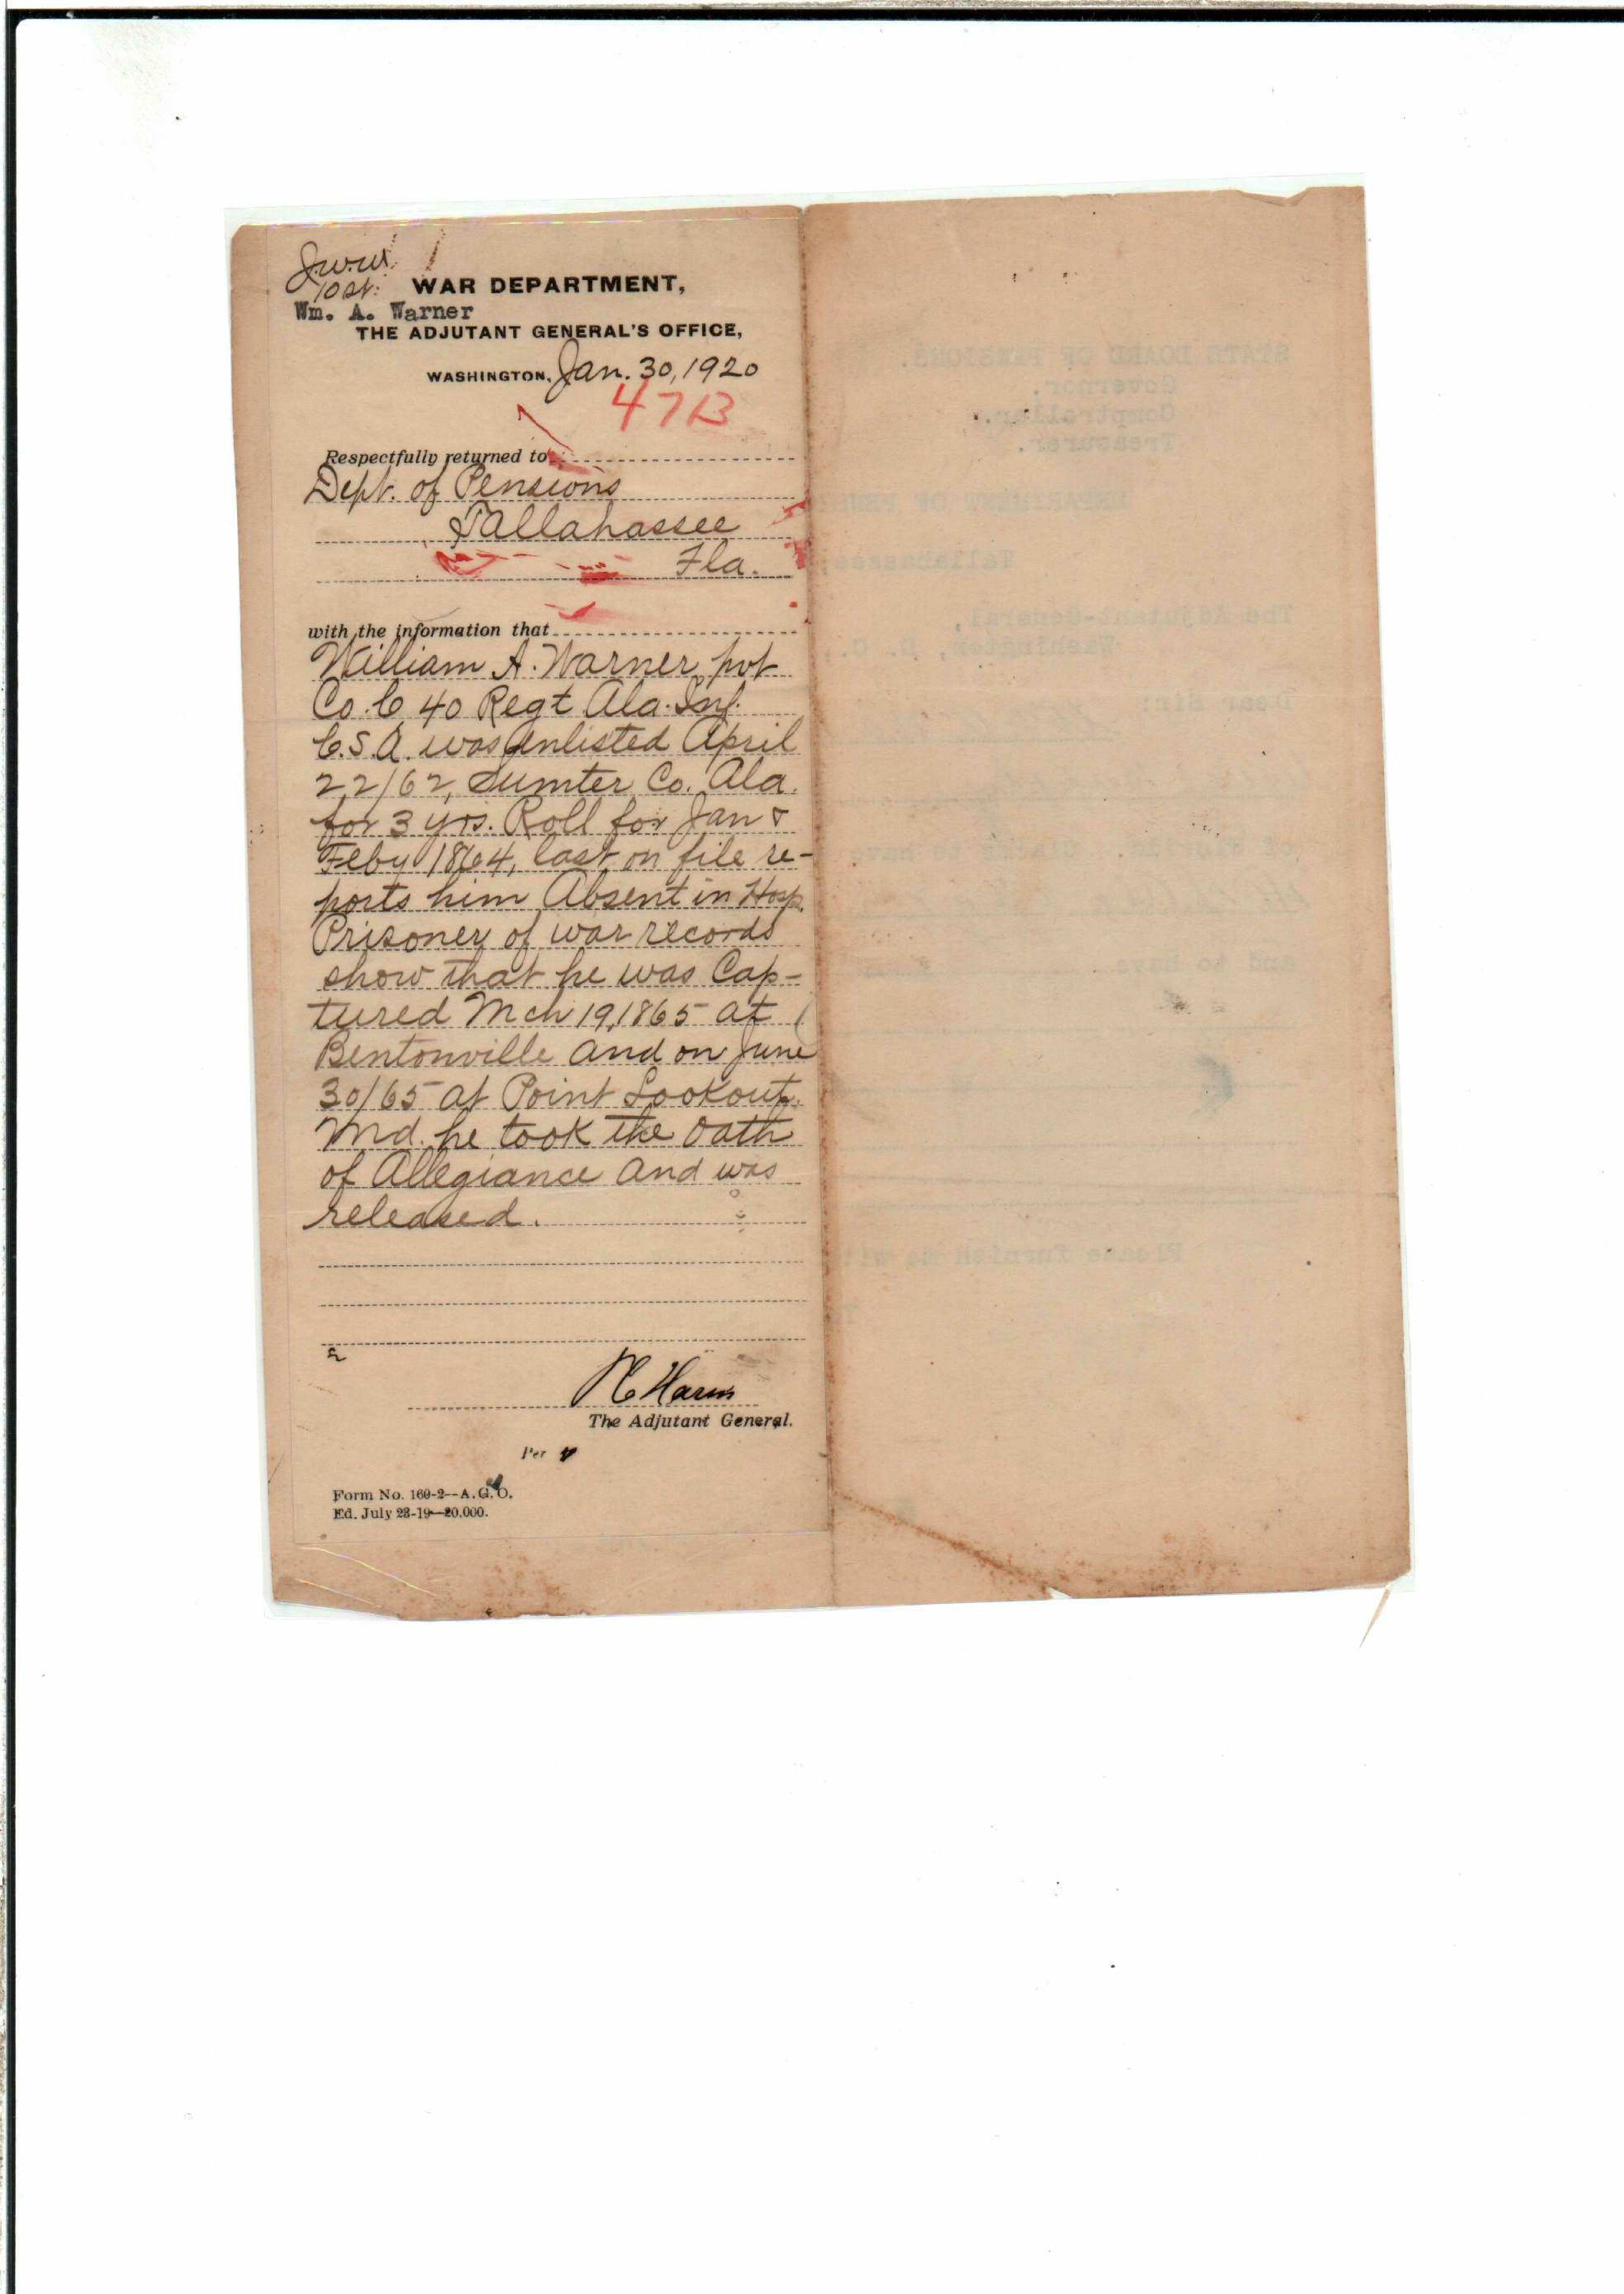 J.W.W.
WAR DEPARTMENT,
Wm. A. Warner
THE ADJUTANT GENERAL'S OFFICE,
WASHINGTON, Jan. 30, 1920
Respectfully returned to
Dept. of Pensions
Tallahassee
Fla.
with the information that
William A. Warner, pvt
Co. C, 40 Regt Ala. Inf.
C.S.A. was Enlisted April
22/62, Sumter Co. Ala.
for 3 yrs. Roll for Jan &
Feby 1864, last on file re-
ports him Absent in Hosp.
Prisoner of war records
show that he was Cap-
tured Mch 19, 1865 at
Bentonville and on June
30/65 at Point Lookout,
Md. he took the Oath
of Allegiance and was
released.
The Adjutant General.
Per
Form No. 160-2--A.G.O.
Ed. July 23-19--20.000.
STATE BOARD OF PENSIONS.
Governor.
Comptroller.
Treasurer.
DEPARTMENT OF
Tallahassee,
The Adjutant-General,
Washington, D. C.
Dear Sir:
and to have
Please furnish me